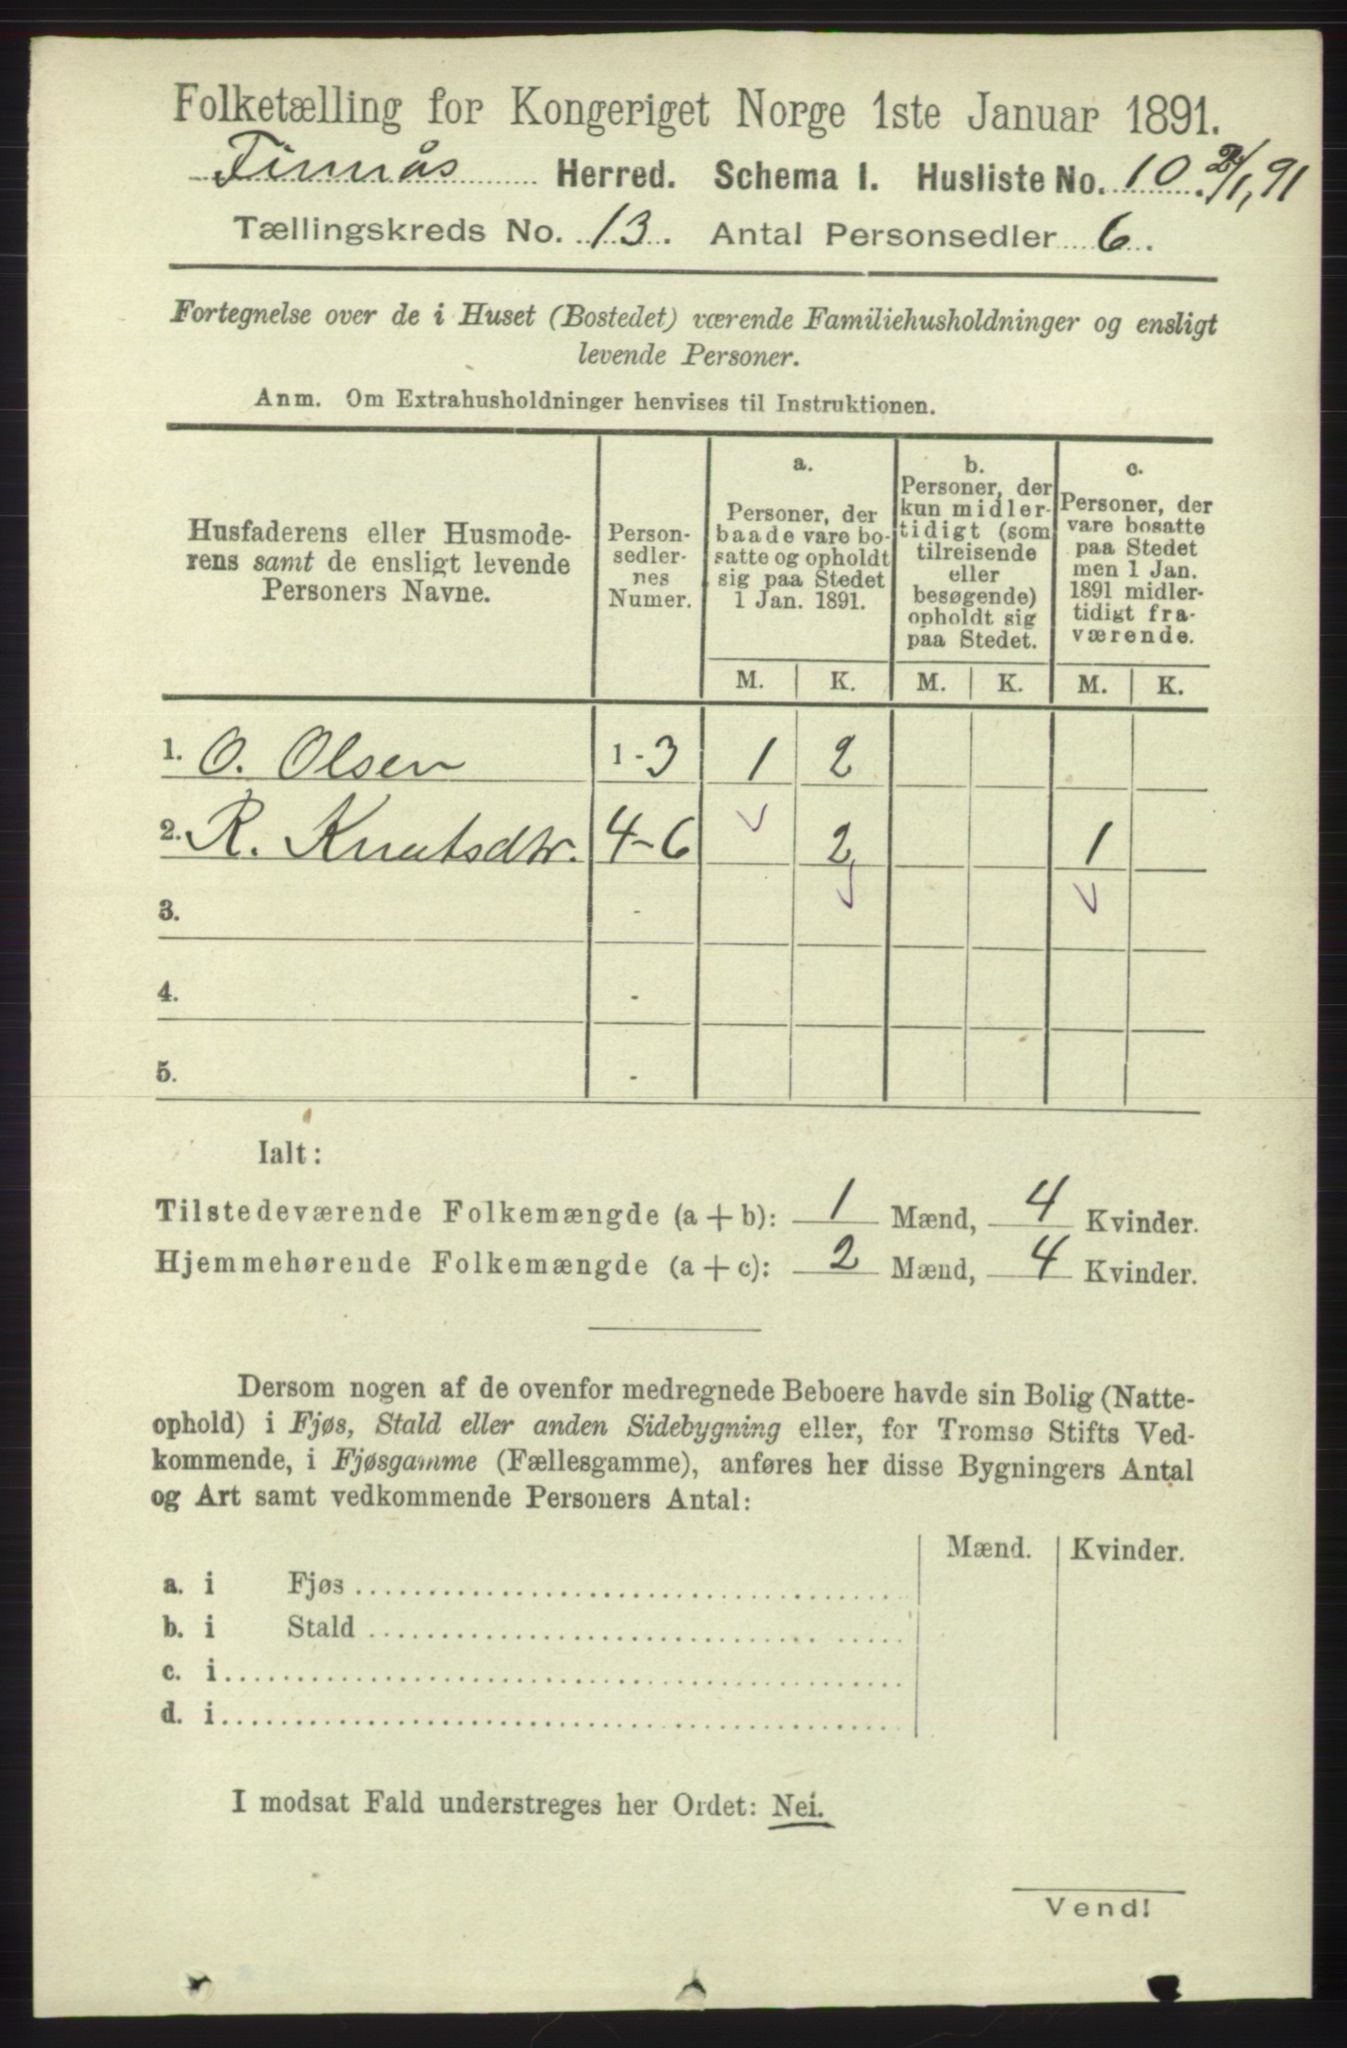 Folketælling for Kongeriget Norge 1ste Januar 1891.
Finnås Herred. Schema I. Husliste No. 10. 2/1, 91
Tællingskreds No. 13. Antal Personsedler 6.
Fortegnelse over de i Huset (Bostedet) værende Familiehusholdninger og ensligt
levende Personer.
Anm. Om Extrahusholdninger henvises til Instruktionen.
Husfaderens eller Husmode-
rens samt de ensligt levende
Personers Navne.
Person-
sedler-
nes
Numer.
a.
Personer, der
baade vare bo-
satte og opholdt
sig paa Stedet
1 Jan. 1891.
b.
Personer, der
kun midler-
tidigt (som
tilreisende
eller
besøgende)
opholdt sig
paa Stedet.
c.
Personer, der
vare bosatte
paa Stedet
men 1 Jan.
1891 midler-
tidigt fra-
værende.
M. K. M. K. M. K.
1. O. Olsen 1-3 1 2
2. R. Knutsdtr. 4-6 2 1
3. -
4. -
5. -
Ialt:
Tilstedeværende Folkemængde (a + b): 1 Mænd, 4 Kvinder.
Hjemmehørende Folkemængde (a + c): 2 Mænd, 4 Kvinder.
Dersom nogen af de ovenfor medregnede Beboere havde sin Bolig (Natte-
ophold) i Fjøs, Stald eller anden Sidebygning eller, for Tromsø Stifts Ved-
kommende, i Fjøsgamme (Fællesgamme), anføres her disse Bygningers Antal
og Art samt vedkommende Personers Antal:
Mænd. Kvinder.
a. i Fjøs
b. i Stald
c. i
d. i
I modsat Fald understreges her Ordet: Nei.
Vend!